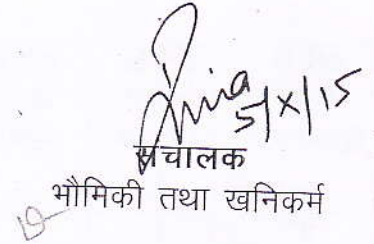 5/X/15
संचालक
भौमिकी तथा खनिकर्म